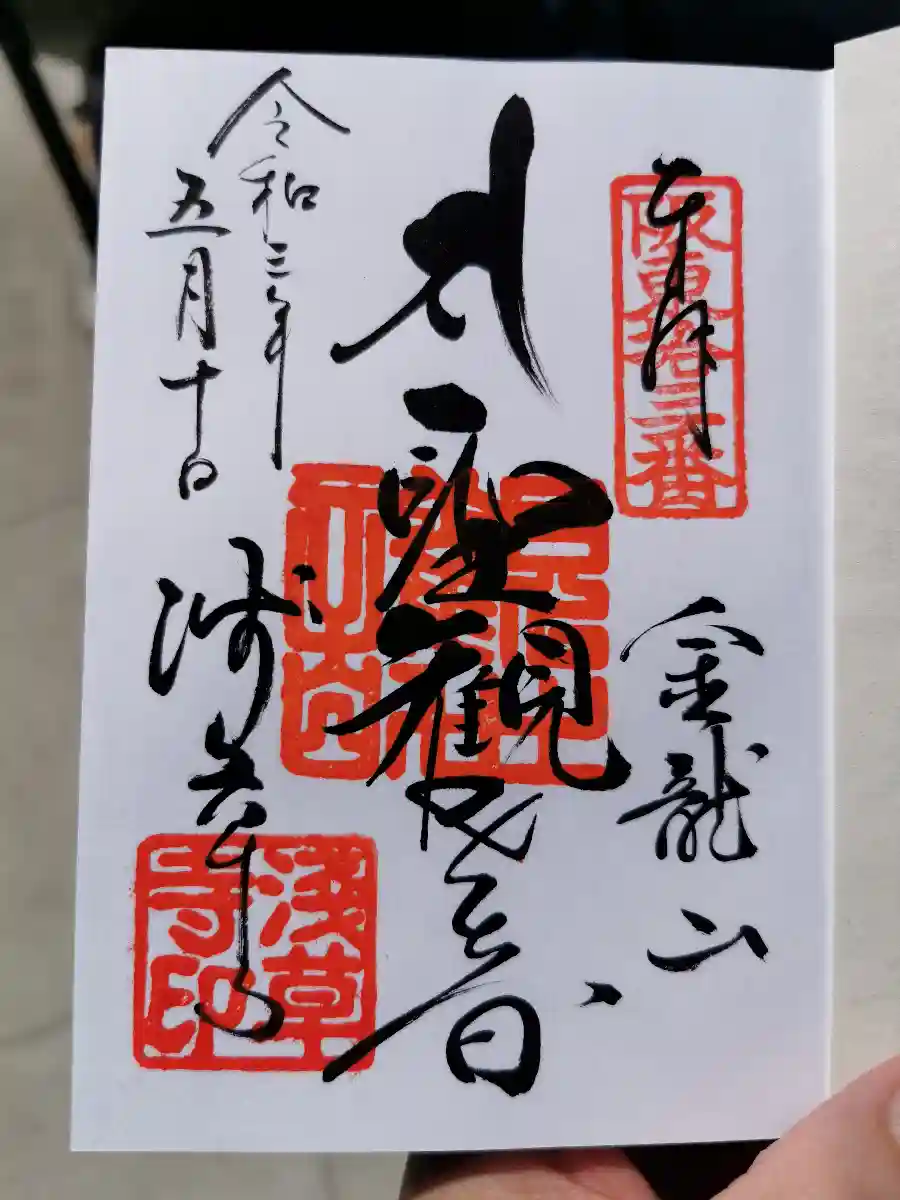 奉拝
阪東拾三番
金龍山
聖観世音
令和三年
五月十日
浅草寺
浅草寺印